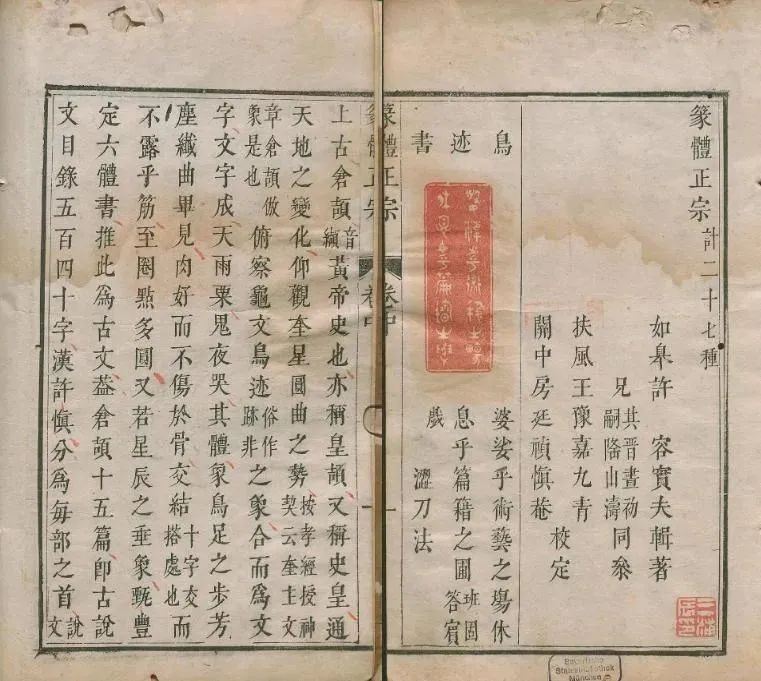 篆體正宗計二十七種
如皋許 容實夫輯著
兄其晉晝初嗣隆山濤同叅
扶風王豫嘉九青
開中房廷禎慎菴 校定
鳥迹書
婆娑乎術藝之塲休
息乎篇籍之囿班固答賓
戲 澀刀法
篆體正宗 卷中 一
上古倉頡音纈黃帝史也亦稱皇頡又稱史皇通
天地之變化仰觀奎星圓曲之勢按孝經授神契云奎主文
章倉頡倣象是也俯察龜文鳥迹俗作跡非之象合而爲文
字文字成天雨粟鬼夜哭其體象鳥足之步芳
塵纖曲畢見肉好而不傷於骨交結十字交搭處也而
不露乎筋至圈點多圓又若星辰之垂象甄豐
定六體書推此爲古文葢倉頡十五篇卽古說
文目錄五百四十字漢許慎分爲每部之首說文
Bayerische
Staatsbibliothek
München